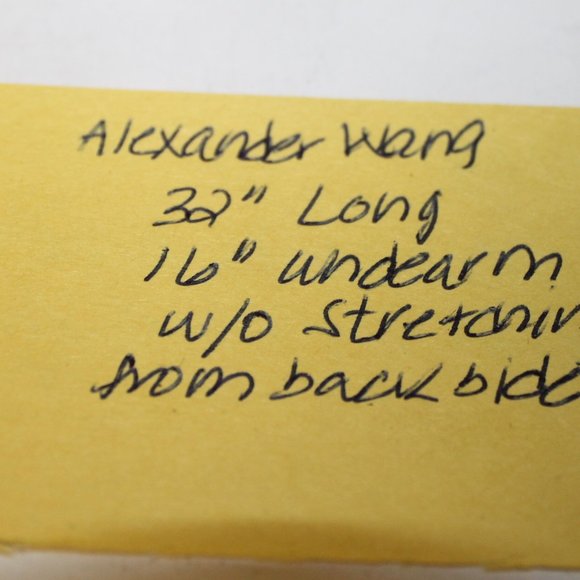 Alexander Wang
32" Long
16" undearm
w/o stretchin
from back side